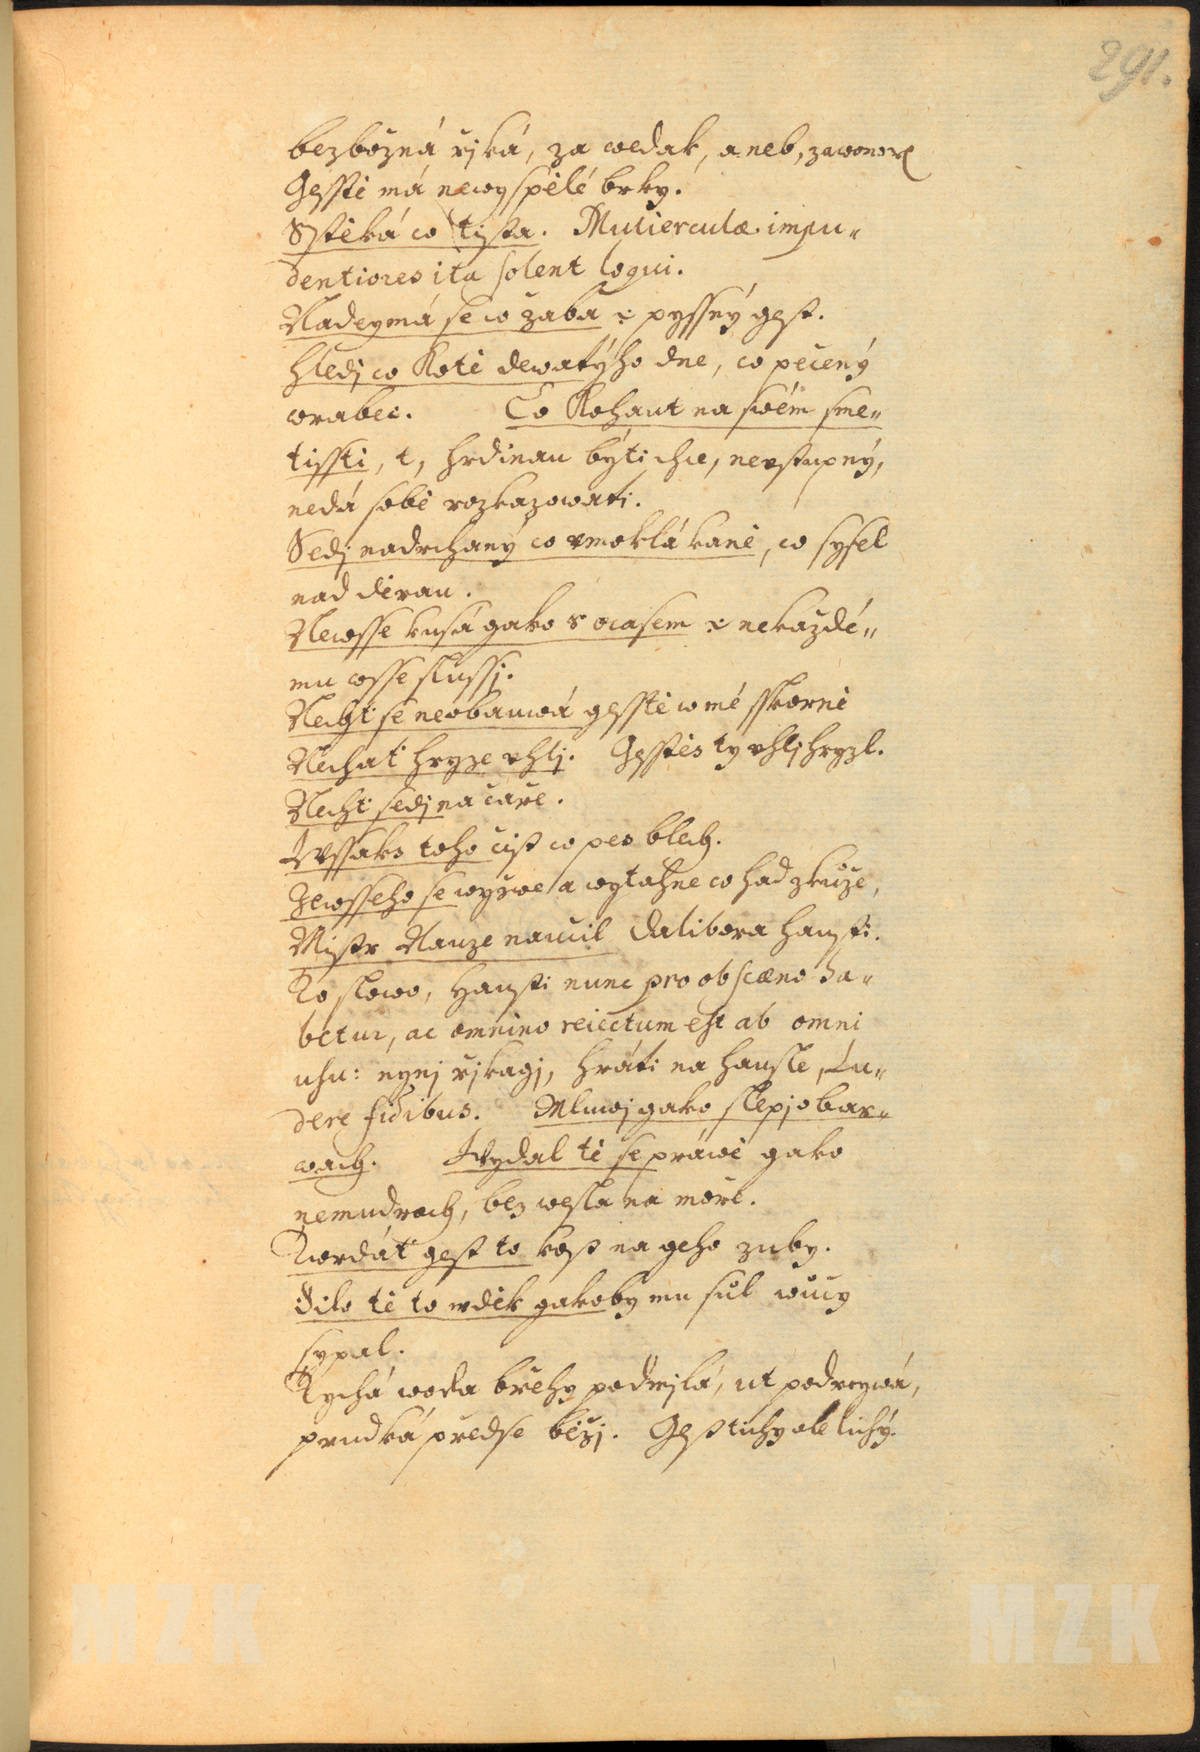 291.
bezbožná řjká, za wedak, aneb, zawonorz
Gesstě má newyspělé brky.
Sstěká co tista. Mulierculæ impu-
dentiores ita solent loqui.
Nadeymá se co žaba :: pyssný gest.
Hledj co Kotě dewatýho dne, co pečený
wrabec. Co Kohaut na swém sme-
tissti, t, hrdinau býti chce, neustupný,
nedá sobě rozkazowati.
Sedj nadrchaný co vmoklá kaně, co sysel
nad děrau.
Newsse kusá gako s ocasem :: nekaždé-
mu wsse slussj.
Nechť se neobauwá gesstě w mé sskorně
Nechať hryze vhlj. Gesstěs ty vhlj hryzl.
Nechť sedj na čáře.
Wssaks toho čist co pes blech.
Zewsseho se wyzwe a wytáhne co had z kůže,
Mistr Nauze naučil Dalibora hausti.
To slowo, Hausti nunc pro obscæno ha-
betur, ac omnino reiectum est ab omni
usu: nynj řjkagj, hráti na hausle, Lu-
dere fidibus. Mluwj gako slepj o bar-
wach. Wydal tě se práwě gako
nemudrach, bez wesla na moře.
Twrdáť gest to kost na geho zuby.
Bilo tě to wděk gakoby mu sůl w očy
sypal.
Tychá woda břehy podmjlá, ut podrywá,
prudká předse běžj. Gest tichy ale lichý.
MZK
MZK